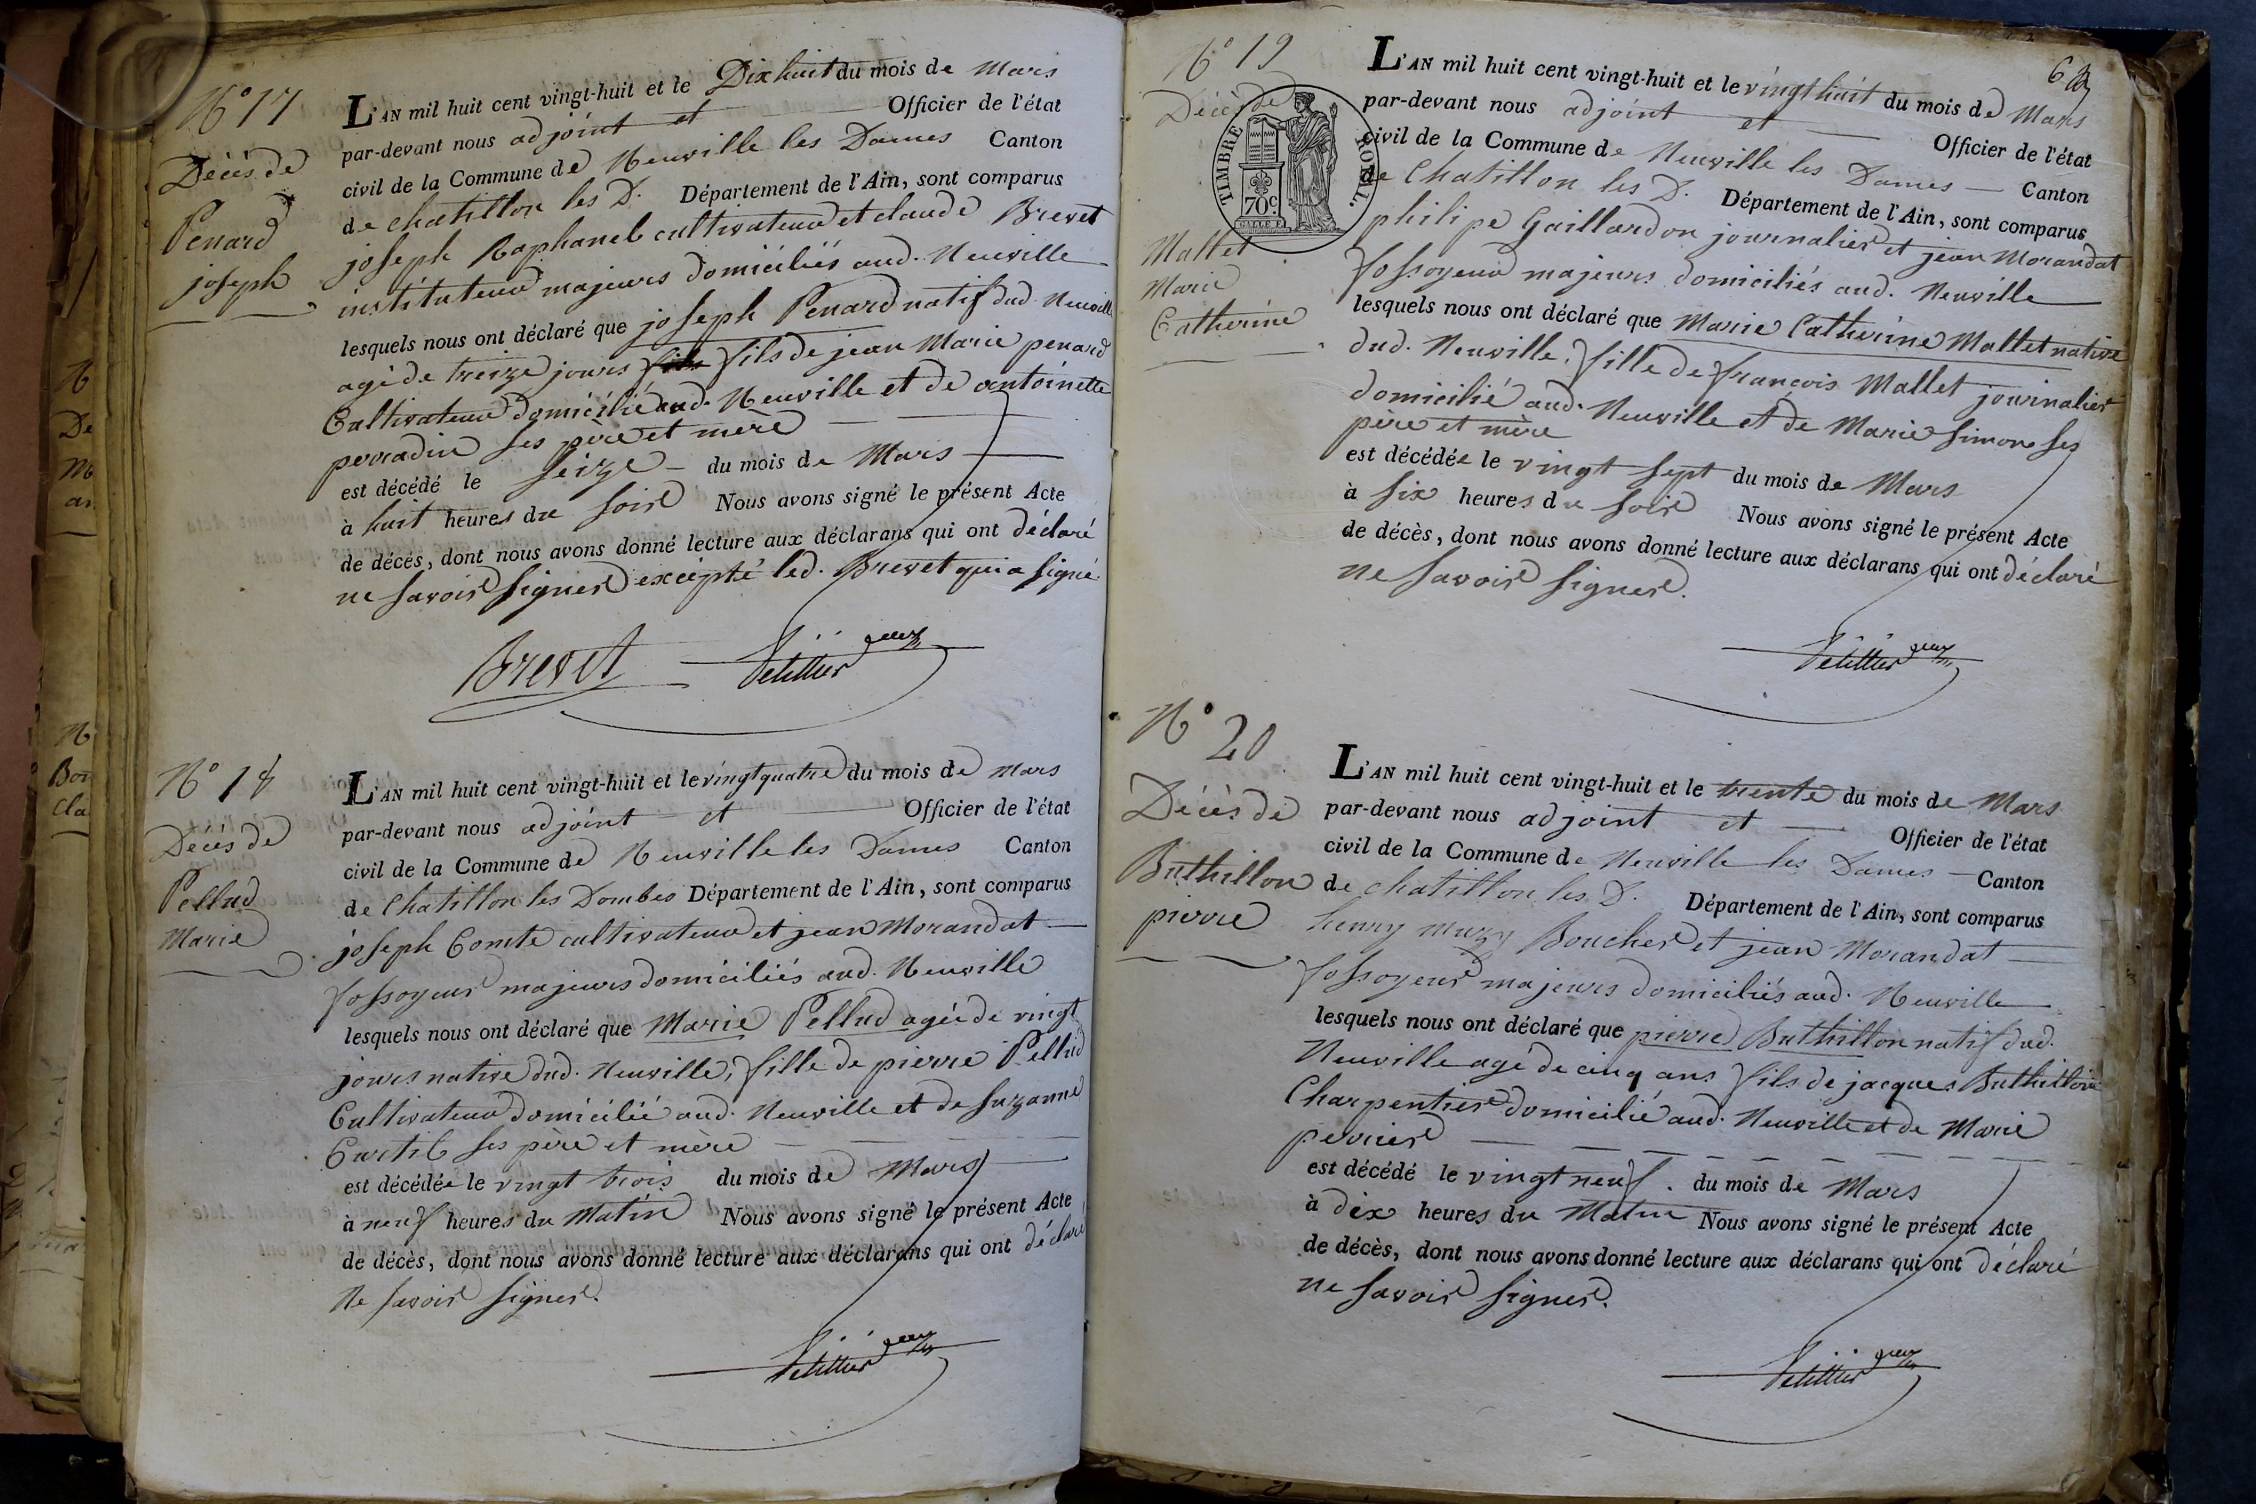 N° 17
Décès de
Penard
joseph
L'AN mil huit cent vingt-huit et le Dix huit du mois de Mars
par-devant nous adjoint et Officier de l'état
civil de la Commune de Neuville les Dames Canton
de Chatillon les D. Département de l'Ain, sont comparus
joseph Raphanel cultivateur et claude Brevet
instituteur majeurs domiciliés aud. Neuville
lesquels nous ont déclaré que joseph Penard natif dud. Neuville
agé de treize jours fils de jean Marie penard
Cultivateur domicilié aud. Neuville et de antoinette
perradin ses père et mère
est décédé le seize du mois de Mars
à huit heures du soir Nous avons signé le présent Acte
de décès, dont nous avons donné lecture aux déclarans qui ont déclaré
ne savoir signer excépté led. Brevet qui a signé
Brevet
N° 18
Décès de
Pellud
Marie
L'AN mil huit cent vingt-huit et le vingt quatre du mois de Mars
par-devant nous adjoint et Officier de l'état
civil de la Commune de Neuville les Dames Canton
de Chatillon les Dombes Département de l'Ain, sont comparus
joseph Comte cultivateur et jean Morandat
fossoyeur majeurs domiciliés aud. Neuville
lesquels nous ont déclaré que Marie Pellud agée de vingt
jours native dud. Neuville, fille de pierre Pellud
Cultivateur domicilié aud. Neuville et de suzanne
Curtil ses père et mère
est décédée le vingt trois du mois de Mars
à neuf heures du Matin Nous avons signé le présent Acte
de décès, dont nous avons donné lecture aux déclarans qui ont déclaré
Ne savoir signer.
N° 19
Décès de
Mallet
Marie
Catherine
TIMBRE ROYAL.
70c
L'AN mil huit cent vingt-huit et le vingt huit du mois de Mars
par-devant nous adjoint et Officier de l'état
civil de la Commune de Neuville les Dames Canton
de Chatillon les D. Département de l'Ain, sont comparus
philipe Gaillardon journalier et jean Morandat
fossoyeur majeurs domiciliés aud. Neuville
lesquels nous ont déclaré que Marie Catherine Mallet native
dud. Neuville, fille de françois Mallet journalier
domicilié aud. Neuville et de Marie simon ses
père et mère
est décédée le vingt sept du mois de Mars
à six heures du soir Nous avons signé le présent Acte
de décès, dont nous avons donné lecture aux déclarans qui ont déclaré
ne savoir signer.
N° 20
Décès de
Buthillon
pierre
L'AN mil huit cent vingt-huit et le trente du mois de Mars
par-devant nous adjoint et Officier de l'état
civil de la Commune de Neuville les Dames Canton
de chatillon les D. Département de l'Ain, sont comparus
henry muzy Boucher et jean Morandat
fossoyeur majeurs domiciliés aud. Neuville
lesquels nous ont déclaré que pierre Buthillon natif dud.
Neuville agé de cinq ans fils de jacques Buthillon
Charpentier domicilié aud. Neuville et de Marie
perrier
est décédé le vingt neuf du mois de Mars
à dix heures du Matin Nous avons signé le présent Acte
de décès, dont nous avons donné lecture aux déclarans qui ont déclaré
ne savoir signer.